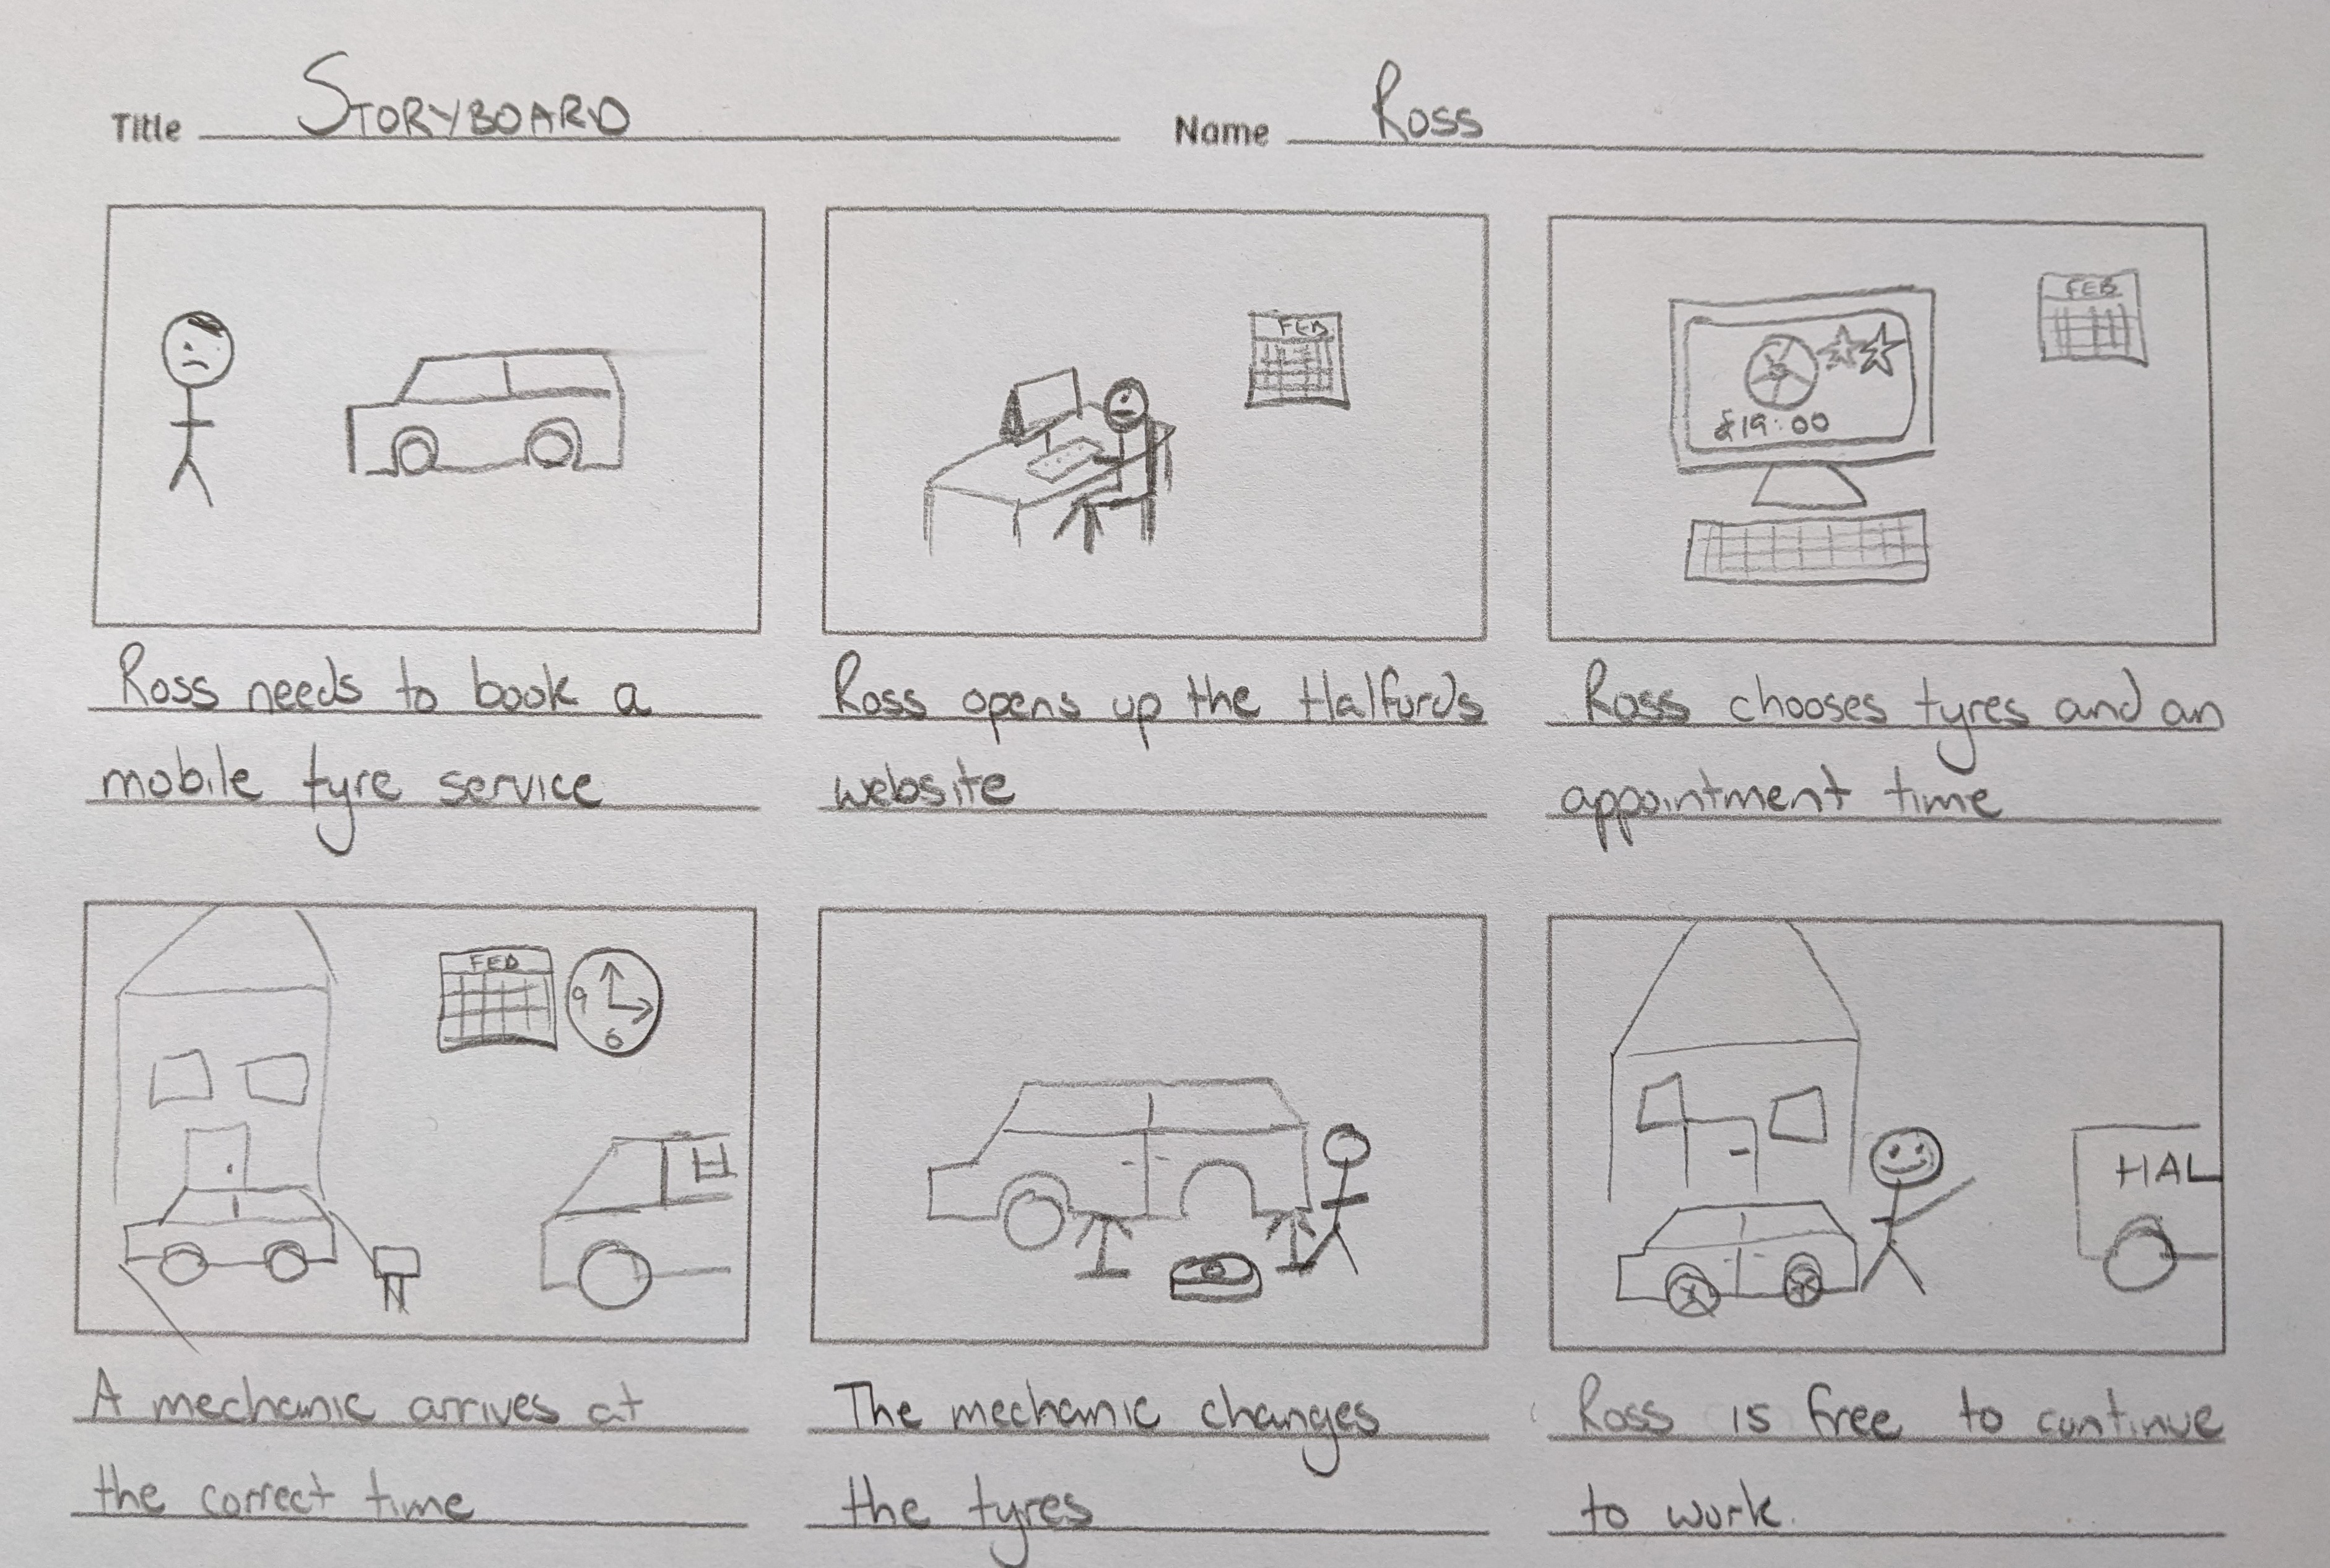 Title STORYBOARD Name Ross
FEB
FEB
£19:00
Ross needs to book a
mobile tyre service
Ross opens up the Halfords
website
Ross chooses tyres and an
appointment time
FEB
9
6
H
HAL
A mechanic arrives at
the correct time
The mechanic changes
the tyres
Ross is free to continue
to work.